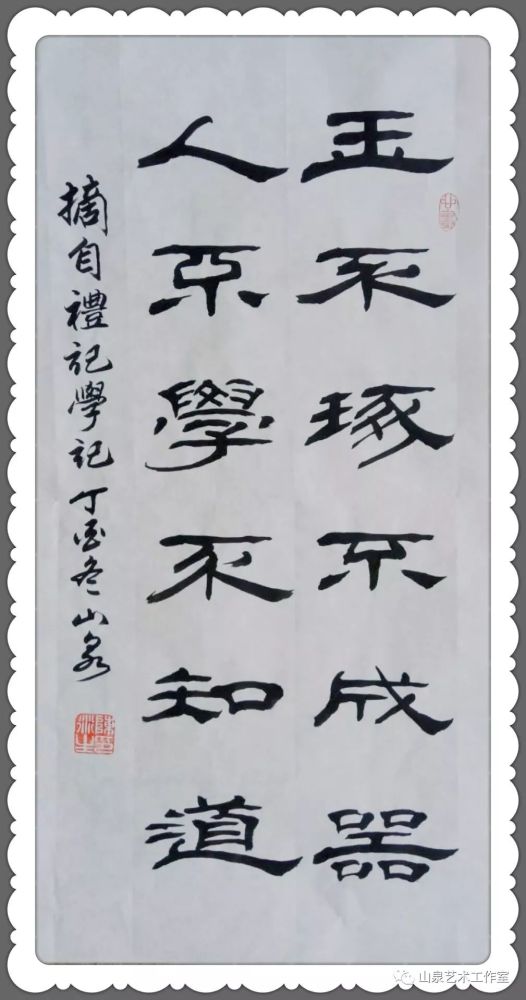 玉不琢不成器
人不學不知道
摘自禮記學記丁酉冬山泉
山泉艺术工作室